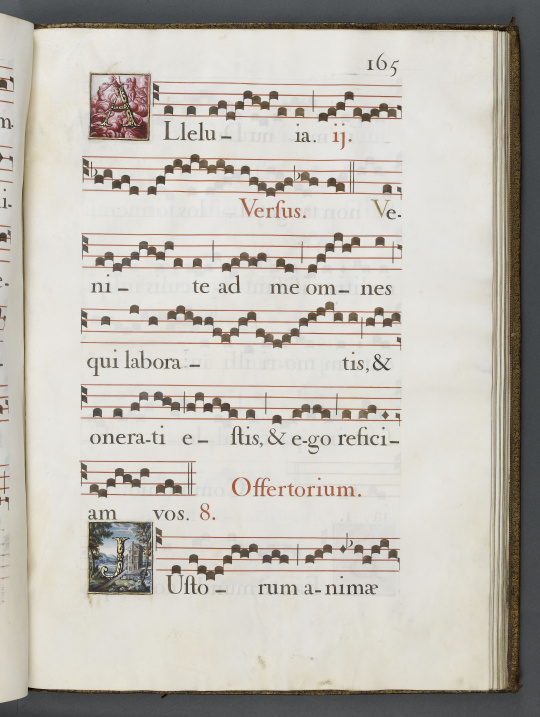 165
ALlelu – ia. ij.
Verſus. Ve-
ni – te ad me om – nes
qui labora – tis, &
onera-ti e – ſtis, & e-go refici –
am vos. 8. Offertorium.
JUſto – rum a-nimæ